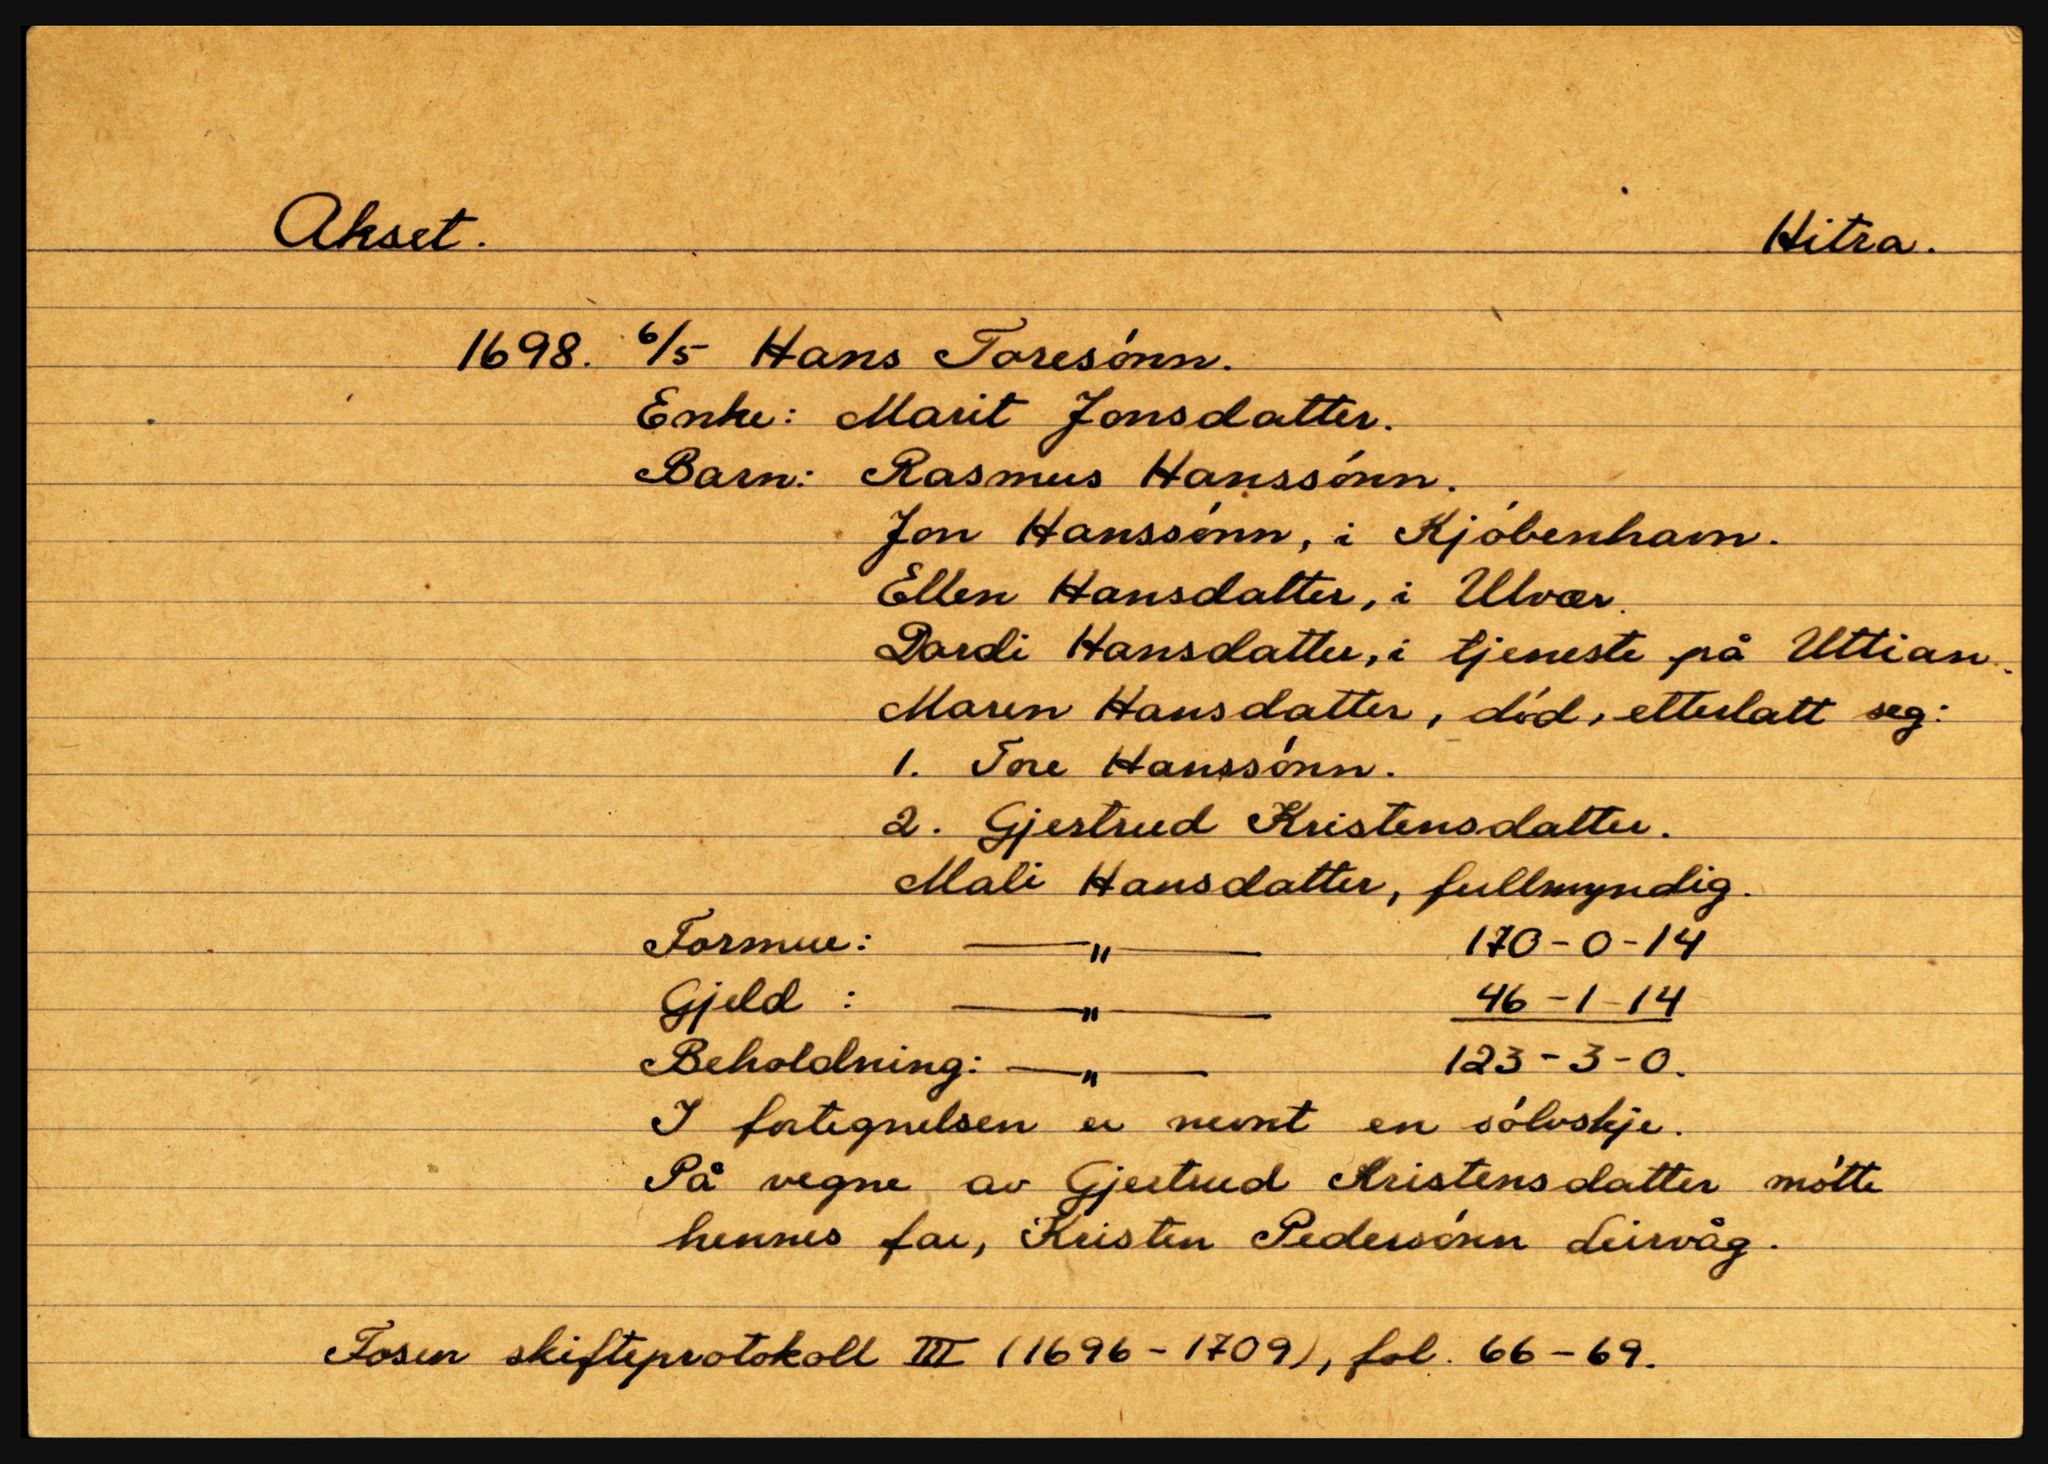 Akset. Hitra.
1698. 6/5 Hans Toresónn.
Enke: Marit Jonsdatter.
Barn: Rasmus Hanssónn.
Jon Hanssónn, i Kjóbenhavn.
Ellen Hansdatter, i Ulvær.
Dordi Hansdatter, i tjeneste på Uttian.
Maren Hansdatter, dód, etterlatt seg:
1. Tore Hanssónn.
2. Gjertrud Kristensdatter.
Mali Hansdatter, fullmyndig.
Formue: —„— 170-0-14
Gjeld : —„— 46-1-14
Beholdning: —„— 123-3-0.
I fortegnelsen er nevnt en sólvskje.
På vegne av Gjertrud Kristensdatter mótte
hennes far, Kristen Pedersónn Leirvåg.
Fosen skifteprotokoll III (1696-1709), fol. 66-69.